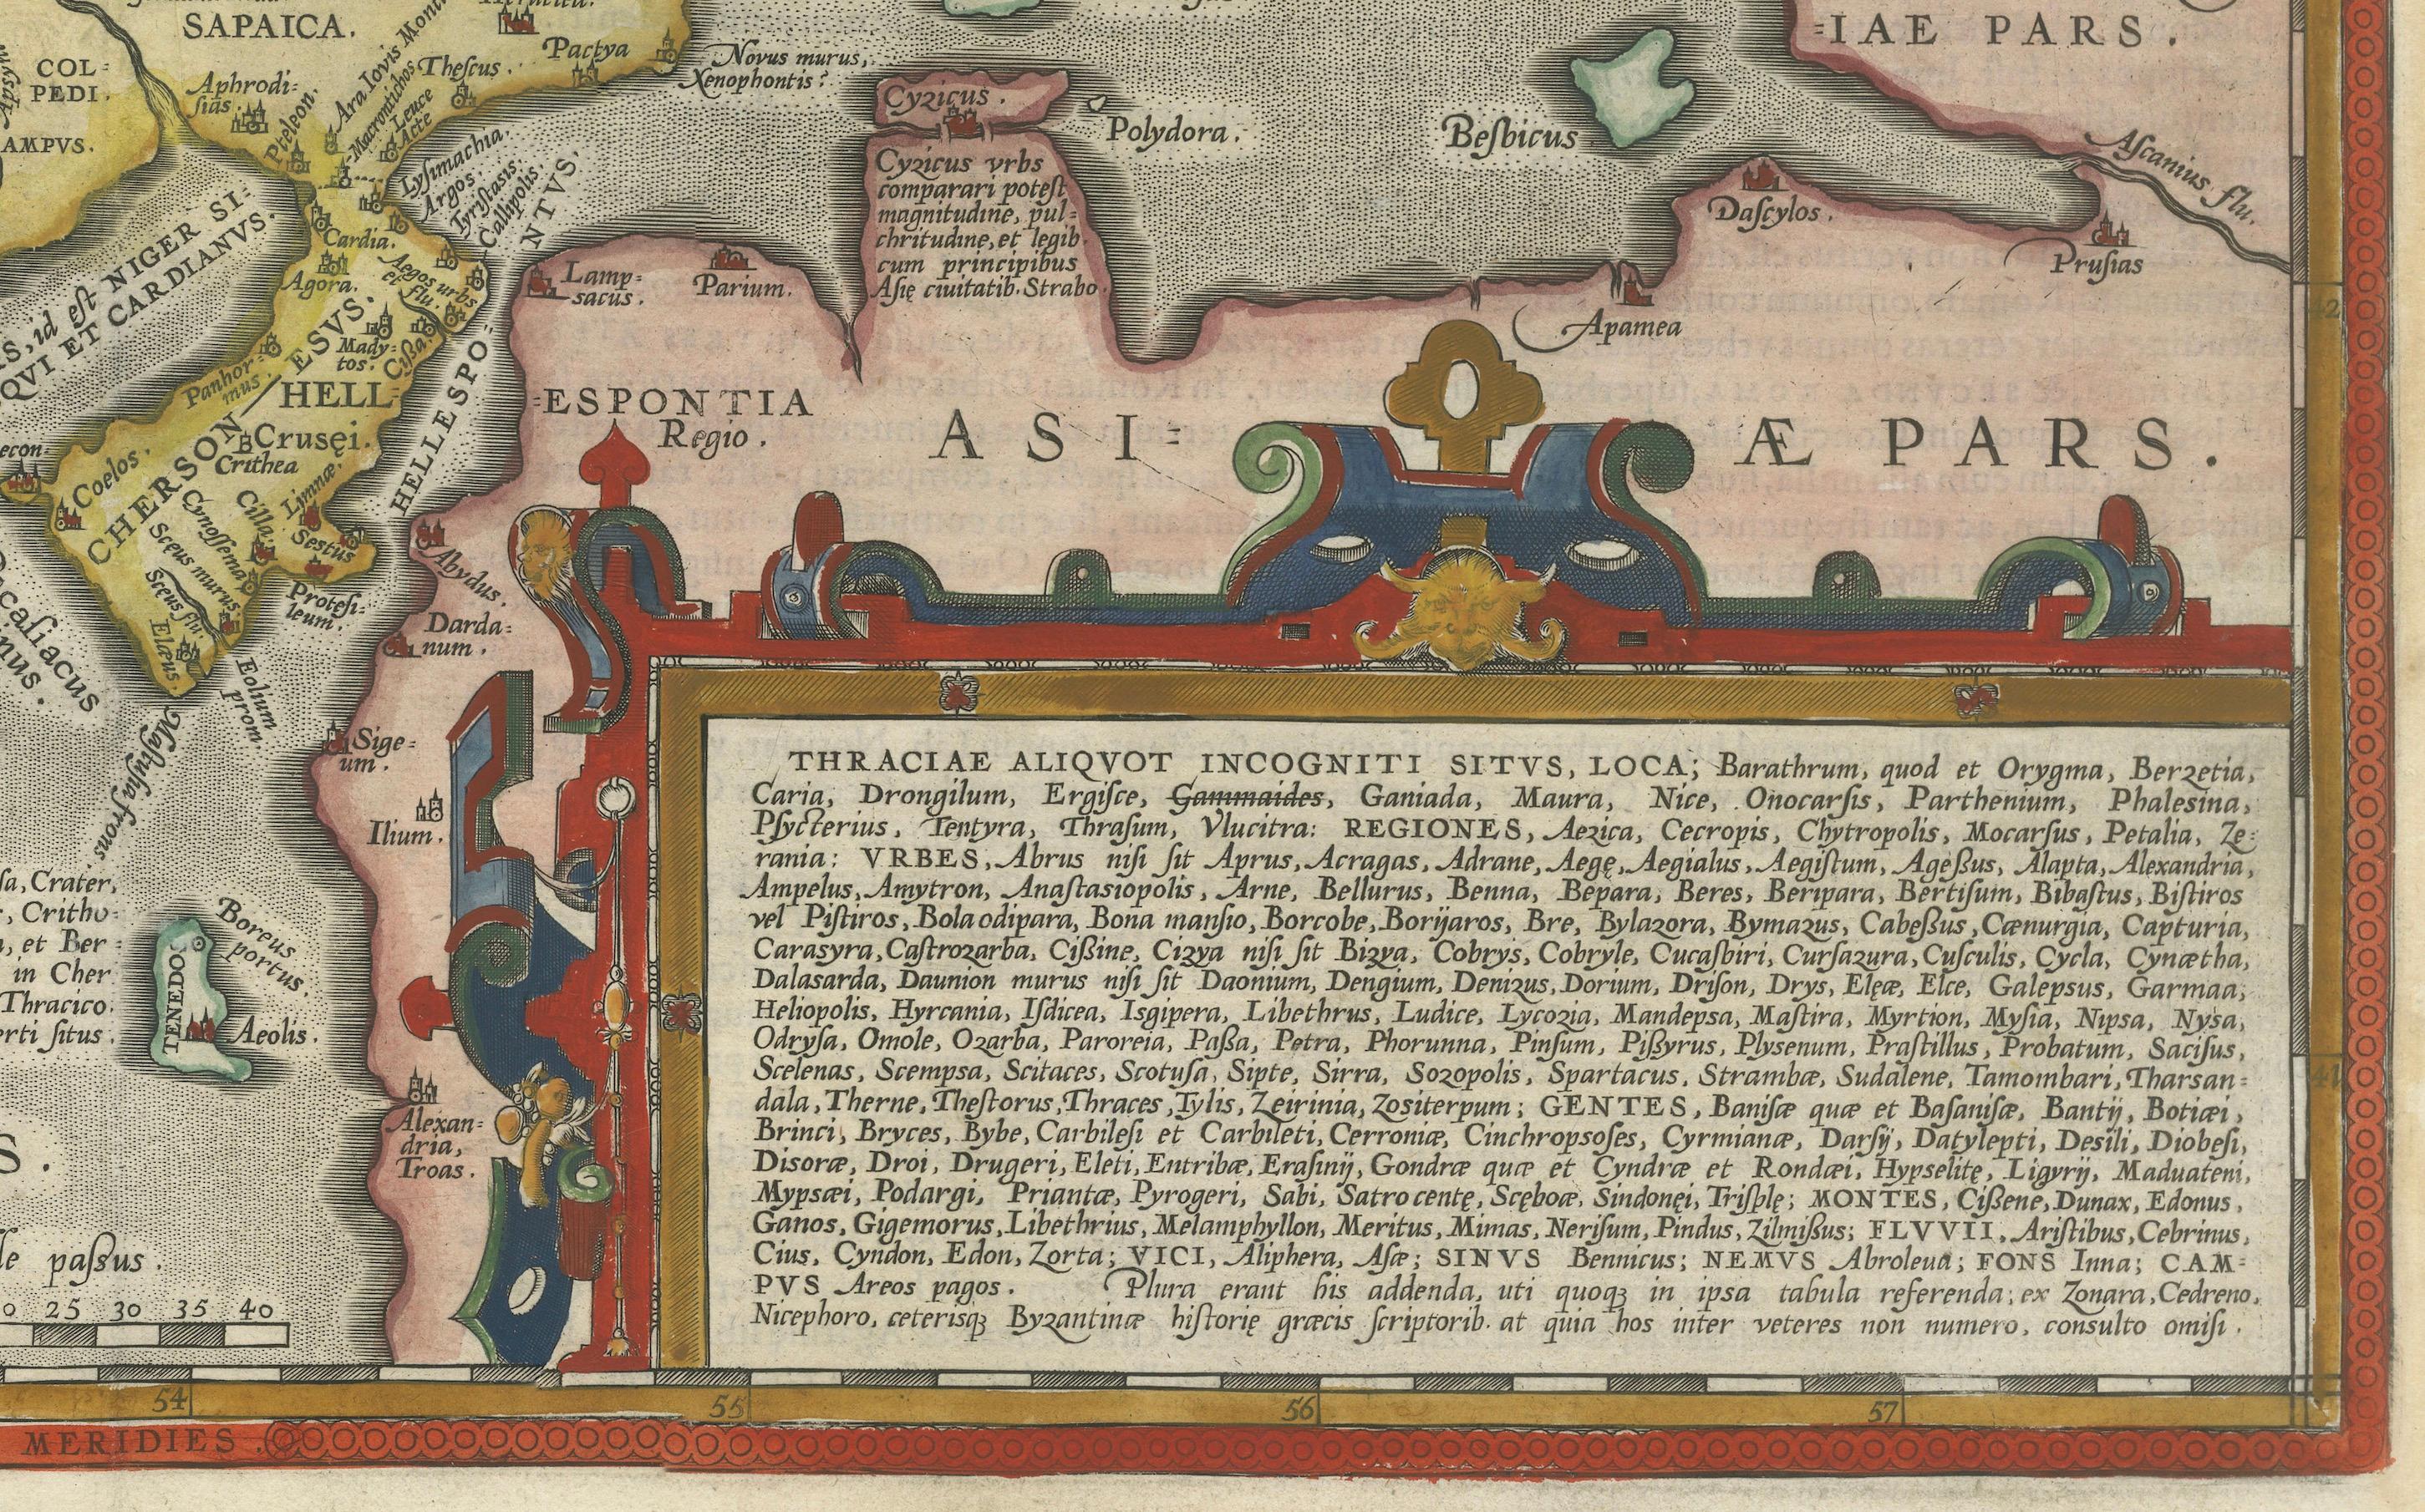 SAPAICA.
COL=
PEDI.
AMPVS.
Aphrodi=
sias.
Pteleon.
Ara Iovis
Macrontichos
Leuce
Acte
Theſcus.
Pactya
Novus murus,
Xenophontis?
Lyſimachia,
Argos.
Tyriſtasis.
Callipolis.
NTVS.
Cyzicus.
Polydora.
Cyzicus vrbs
comparari poteſt
magnitudine, pul=
chritudine, et legib.
cum principibus
Aſię ciuitatib. Strabo.
Beſbicus
=IAE PARS.
Aſcanius flu.
Daſcylos.
Pruſias
Apamea
Lamp=
sacus.
Parium.
S, id eſt NIGER SI=
QVI ET CARDIANVS.
Cardia.
Agora.
Aegos urbs
et flu.
ESVS.
Mady=
tos.
Cißa.
Panhor=
mus.
HELL=
HELLESPO=
=ESPONTIA
Regio.
ASI=
Æ PARS.
Crusęi.
Crithea
CHERSON
Coelos.
econ=
Limnæ.
Cilla.
Sestus
Cynoſſema
Sceus murus.
Sceus flu.
Elæus.
Proteſi=
leum.
Eolium
prom.
Maſtuſia frons.
Abydus.
Darda=
num.
Sige=
um.
Ilium.
ſa, Crater,
, Critho=
, et Ber=
in Cher
Thracico.
erti ſitus.
TENEDOS
Boreus
portus.
Aeolis.
Alexan=
dria,
Troas.
S.
le paßus.
25 30 35 40
THRACIAE ALIQVOT INCOGNITI SITVS, LOCA; Barathrum, quod et Orygma, Berzetia,
Caria, Drongilum, Ergiſce, Gammaides, Ganiada, Maura, Nice, Onocarſis, Parthenium, Phalesina,
Pſycterius, Tentyra, Thraſum, Vlucitra: REGIONES, Aezica, Cecropis, Chytropolis, Mocarſus, Petalia, Ze=
rania: VRBES, Abrus niſi ſit Aprus, Acragas, Adrane, Aegę, Aegialus, Aegiſtum, Ageßus, Alapta, Alexandria,
Ampelus, Amytron, Anaſtasiopolis, Arne, Bellurus, Benna, Bepara, Beres, Beripara, Bertiſum, Bibaſtus, Biſtiros
vel Piſtiros, Bola odipara, Bona manſio, Borcobe, Borijaros, Bre, Bylazora, Bymazus, Cabeßus, Cænurgia, Capturia,
Carasyra, Caſtrozarba, Cißine, Cizya niſi ſit Bizya, Cobrys, Cobryle, Cucaſbiri, Curſazura, Cuſculis, Cycla, Cynætha,
Dalasarda, Daunion murus niſi ſit Daonium, Dengium, Denizus, Dorium, Driſon, Drys, Elęæ, Elce, Galepsus, Garmaa,
Heliopolis, Hyrcania, Iſdicea, Isgipera, Libethrus, Ludice, Lycozia, Mandepsa, Maſtira, Myrtion, Myſia, Nipsa, Nysa,
Odryſa, Omole, Ozarba, Paroreia, Paßa, Petra, Phorunna, Pinſum, Pißyrus, Plysenum, Praſtillus, Probatum, Saciſus,
Scelenas, Scempsa, Scitaces, Scotuſa, Sipte, Sirra, Sozopolis, Spartacus, Strambæ, Sudalene, Tamombari, Tharsan=
dala, Therne, Theſtorus, Thraces, Tylis, Zeirinia, Zositerpum; GENTES, Baniſæ quæ et Baſaniſæ, Bantij, Botiæi,
Brinci, Bryces, Bybe, Carbileſi et Carbileti, Cerroniæ, Cinchropsoſes, Cyrmianæ, Darſij, Datylepti, Desili, Diobeſi,
Disoræ, Droi, Drugeri, Eleti, Entribæ, Eraſinij, Gondræ quæ et Cyndræ et Rondæi, Hypselitę, Ligyrij, Maduateni,
Mypsæi, Podargi, Priantæ, Pyrogeri, Sabi, Satrocentę, Scęboæ, Sindonęi, Triſplę; MONTES, Cißene, Dunax, Edonus,
Ganos, Gigemorus, Libethrius, Melamphyllon, Meritus, Mimas, Neriſum, Pindus, Zilmißus; FLVVII, Ariſtibus, Cebrinus,
Cius, Cyndon, Edon, Zorta; VICI, Aliphera, Aſæ; SINVS Bennicus; NEMVS Abroleua; FONS Inna; CAM=
PVS Areos pagos. Plura erant his addenda, uti quoqꝫ in ipsa tabula referenda; ex Zonara, Cedreno,
Nicephoro, ceterisqꝫ Byzantinæ hiſtorię græcis ſcriptorib. at quia hos inter veteres non numero, consulto omiſi.
42
41
54 55 56 57
MERIDIES.